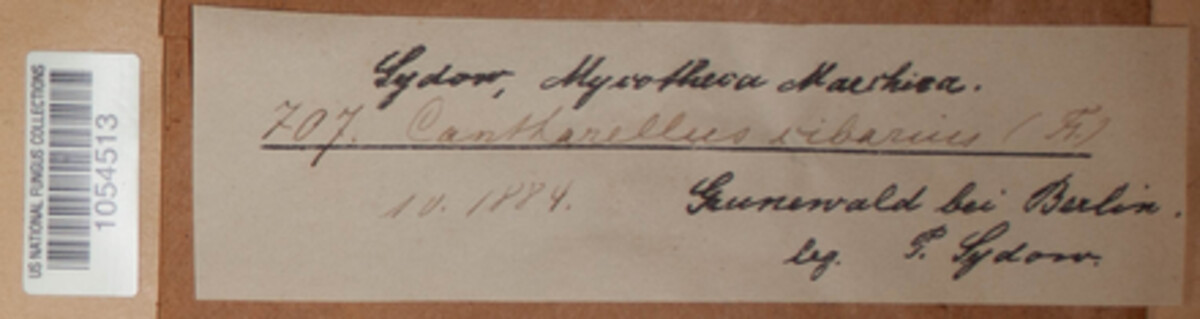 US NATIONAL FUNGUS COLLECTIONS
1054513
Sydow, Mycotheca Marchica.
707. Cantharellus cibarius (Fr)
10. 1884.
Grunewald bei Berlin.
leg. P. Sydow.